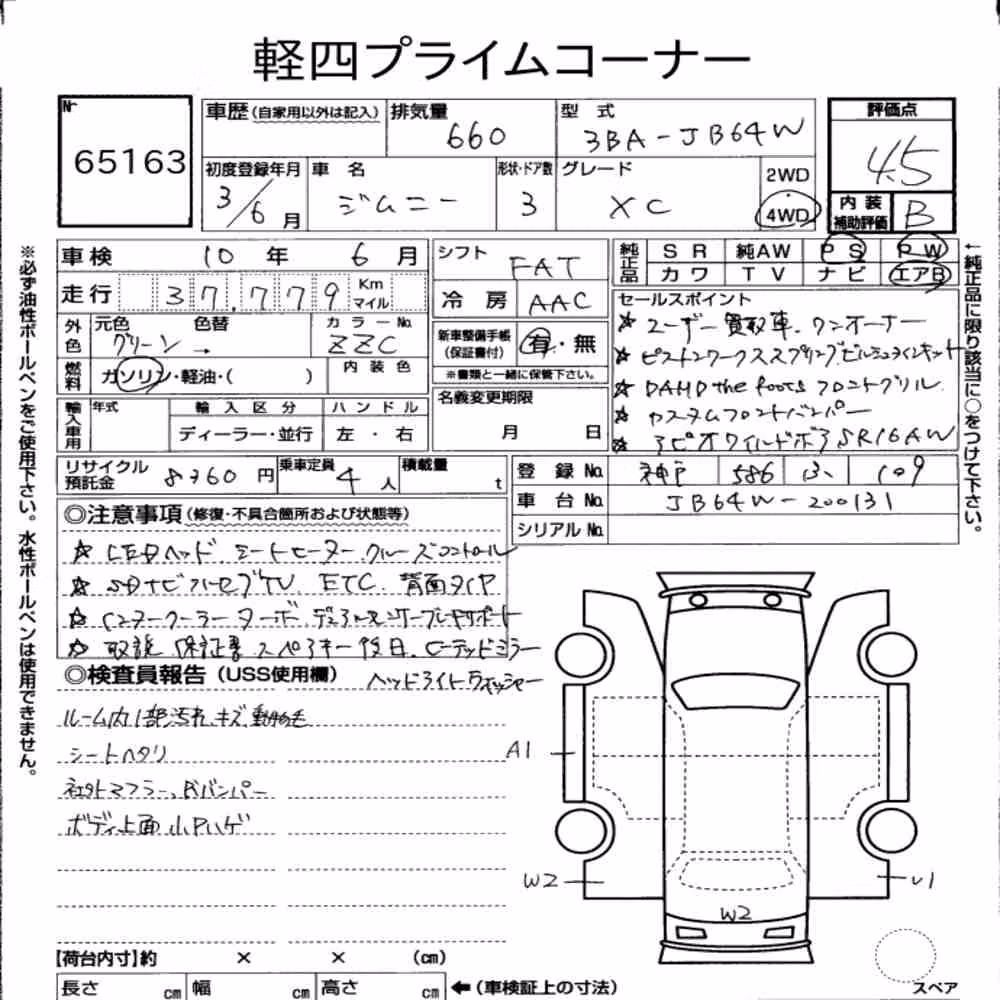 軽四プライムコーナー
No.
65163
車歴(自家用以外は記入)
排気量
660
型式
3BA-JB64W
評価点
4.5
内装補助評価
B
初度登録年月
3/6月
車名
ジムニー
形状・ドア数
3
グレード
XC
2WD
・
4WD
※必ず油性ボールペンをご使用下さい。水性ボールペンは使用できません。
車検 10年 6月
走行 37,779 Km マイル
外色
元色 色替
グリーン →
カラーNo.
ZZC
燃料
ガソリン・軽油・( )
内装色
輸入車用
年式
輸入区分
ディーラー・並行
ハンドル
左・右
シフト
FAT
冷房
AAC
新車整備手帳(保証書付)
有・無
※書類と一緒に保管下さい。
名義変更期限
月 日
純正品
SR 純AW PS PW
カワ TV ナビ エアB
セールスポイント
☆ユーザー買取車.ワンオーナー
☆ピストンワークススプリングビルシュタインキット
☆DAMD the Roots フロントグリル.
☆カスタムフロントバンパー
☆アピオワイルドボアSR16AW
←純正品に限り該当に○をつけて下さい。
リサイクル預託金 8360円
乗車定員 4人
積載量 t
登録No. 神戸 586 109
車台No. JB64W-200131
シリアルNo.
◎注意事項(修復・不具合箇所および状態等)
☆LEDヘッド.シートヒーター.クルーズコントロール
☆SDナビフルセグTV.ETC.背面タイヤ
☆インタークーラーターボ.デュアルセンサーブレーキサポート
☆取説.保証書.スペアキー後日.ヒーテッドミラー
ヘッドライトウォッシャー
◎検査員報告(USS使用欄)
ルーム内1部汚れ.キズ.動物毛
シートヘタリ
社外マフラー、Rバンパー
ボディ上面小Pハゲ
A1
W2
W2
U1
スペア
【荷台内寸】約 × × (cm)
長さ cm 幅 cm 高さ cm ←(車検証上の寸法)